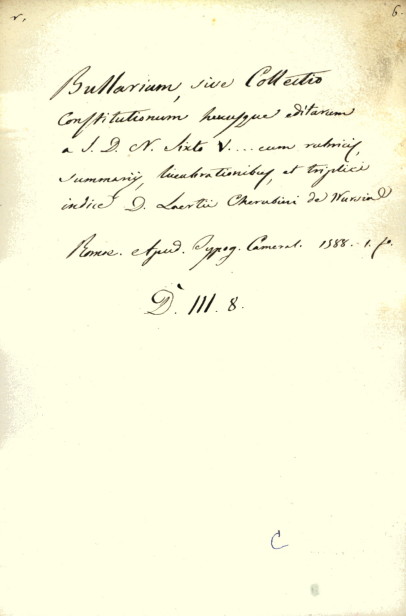 r. 6.
Bullarium, sive Collectio
Constitutionum hucusque editarum
a S. D. N. Sixto V.... cum rubricis,
summariis, lucubrationibus, et triplici
indice D. Laertii Cherubini de Nursia
Romae. Apud. Typog. Cameral. 1588. 1. fo.
D. III. 8.
C